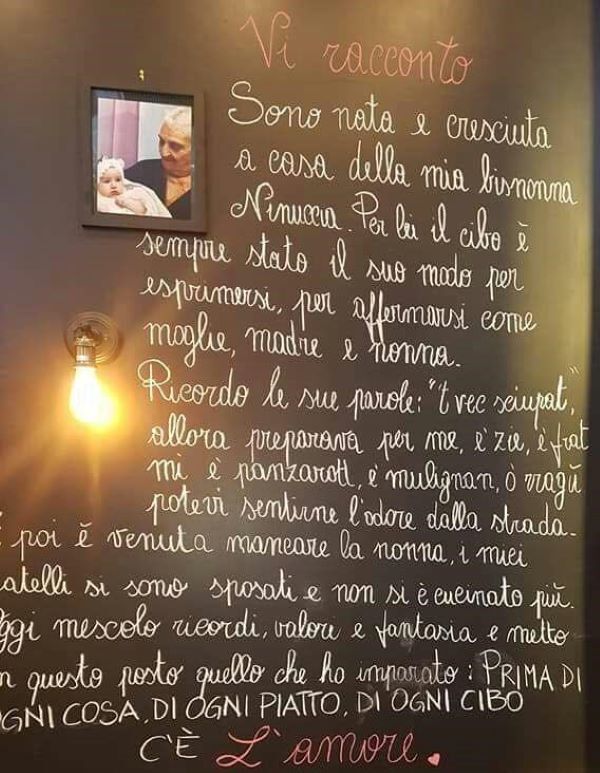 Vi racconto
Sono nata e cresciuta
a casa della mia bisnonna
Ninuccia. Per lei il cibo è
sempre stato il suo modo per
esprimersi, per affermarsi come
moglie, madre e nonna.
Ricordo le sue parole: "t vec sciupat",
allora preparava per me, e' zie, e frat
mi è panzarott, e' mulignan, ò ragù
potevi sentirne l'odore dalla strada.
poi è venuta mancare la nonna, i miei
atelli si sono sposati e non si è cucinato più.
ggi mescolo ricordi, valori e fantasia e metto
n questo posto quello che ho imparato: PRIMA DI
OGNI COSA, DI OGNI PIATTO, DI OGNI CIBO
C'È L'amore.